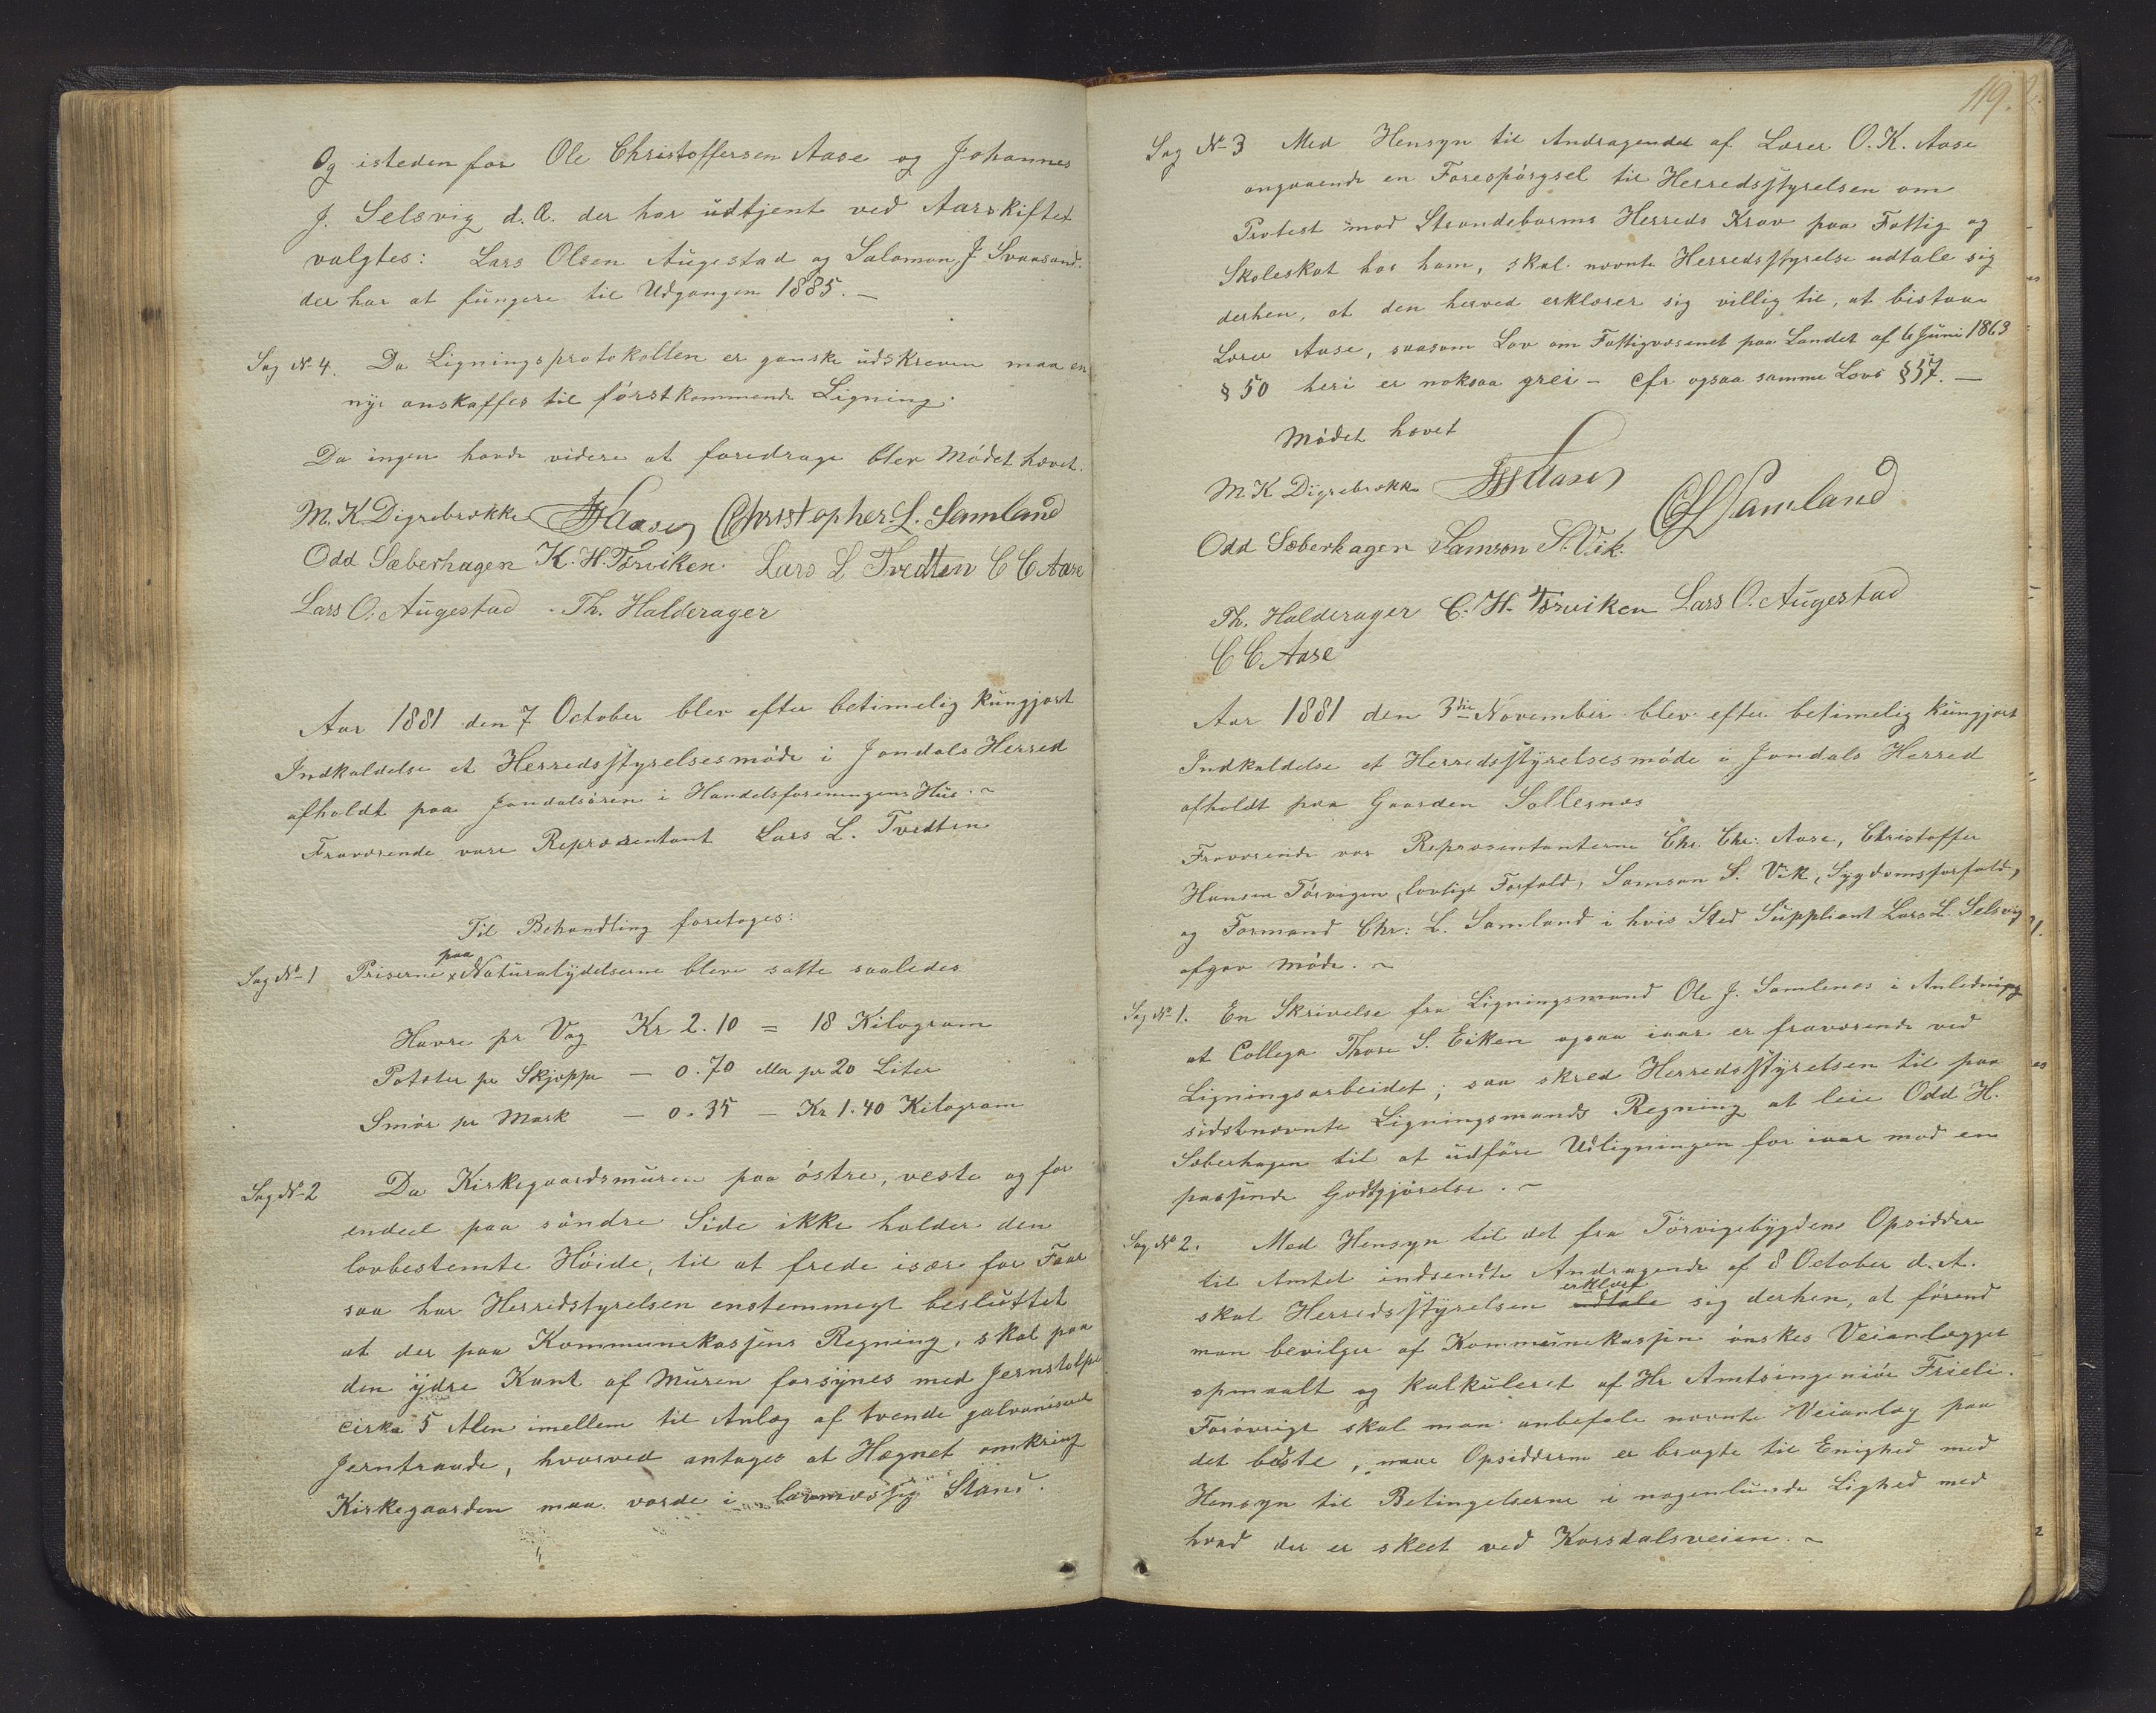 Og isteden for Ole Christoffersen Aase og Johannes
J. Selsvig d.A. der har udtjent ved Aarskiftet
valgtes: Lars Olsen Augestad og Salamon J. Svaasand.
der har at fungere til Udgangen 1885. —
Sag No 4. Da Ligningsprotokollen er ganske udskreven maa en
ny anskaffes til förstkommende Ligning.
Da ingen havde videre at foredrage blev Mödet hævet.
M. K Digrebrække Christopher L. Samland
Odd Sæberhagen K. H. Törviken. Lars L Tvedten C C Aase
Lars O. Augestad . Th. Halderager
Aar 1881 den 7 October blev efter betimelig kungjort
Indkaldelse et Herredsstyrelsesmöde i Jondals Herred
afholdt paa Jondalsören i Handelsforeningens Hus. ~
Fraværende vare Repræsentant Lars L. Tvedten
Til Behandling foretages:
Sag No 1 Priserne paa Naturalydelserne bleve satte saaledes
Havre pr Vog Kr 2.10 = 18 Kilogram
Poteter pr Skjeppe — 0.70 eller pr 20 Liter
Smör pr Mark — 0.35 — Kr 1.40 Kilogram
Sag No 2 Da Kirkegaardsmuren paa östre, veste og for
endeel paa söndre Side ikke holder den
lovbestemte Höide, til at frede især for Faar
saa har Herredstyrelsen enstemmegt besluttet
at der paa Kommunekassens Regning, skal paa
den ydre Kant af Muren forsynes med Jernstolpe
cirka 5 Alen imellem til Anlæg af tvende galvaniserede
Jerntraade, hvorved antages at Hegnet omkring
Kirkegaarden maa vorde i lovmæssig Stand.
119.
Sag No 3 Med Hensyn til Andragendet af Lærer O. K. Aase
angaaende en Forespörgsel til Herredsstyrelsen om
Protest mod Strandebarms Herreds Krav paa Fattig og
Skoleskat hos ham, skal nævnte Herredsstyrelse udtale sig
derhen, at den herved erklærer sig villig til, at bistaa
Lærer Aase, saasom Lov om Fattigvæsenet paa Landet af 6 Juni 1863
§ 50 heri er noksaa grei — cfr ogsaa samme Lovs § 57. —
Mödet hævet
M. K Digrebrække
C L Samland
Odd Sæberhagen Samson S. Vik.
Th. Halderager C. H. Törviken Lars O. Augestad
C C Aase
Aar 1881 den 3die November blev efter betimelig kungjort
Indkaldelse et Herredsstyrelsesmöde i Jondals Herred
afholdt paa Gaarden Sollesnæs
Fraværende var Repræsentanterne Chr. Chr. Aase, Christoffer
Hansen Törvigen, lovligt Forfald, Samson S. Vik, Sygdomsforfald,
og Formand Chr: L. Samland i hvis Sted Suppliant Lars L. Selsvig
afgav möde. ~
Sag No 1. En Skrivelse fra Ligningsmand Ole J. Samlenæs i Anledning
at Collega Thore S. Eiken ogsaa iaar er fraværende ved
Ligningsarbeidet; saa skred Herredsstyrelsen til paa
sidstnævnte Ligningsmands Regning at leie Odd H.
Sæberhagen til at udföre Udligningen for iaar mod en
passende Godtgjörelse. ~
Sag No 2. Med Hensyn til det fra Törvigebygdens Opsiddere
til Amtet indsendte Andragende af 8 October d.A.
skal Herredsstyrelsen udtale erklære sig derhen, at förend
man bevilger af Kommunekassen önskes Veianlægget
opmaalt og kalkuleret af Hr Amtsingeniör Frieli.
Forövrigt skal man anbefale nævnte Veianlæg paa
det bedste, naar Opsidderne er bragte til Enighed med
Hensyn til Betingelserne i nogenlunde Lighed med
hvad der er skeet ved Korsdalsveien. ~